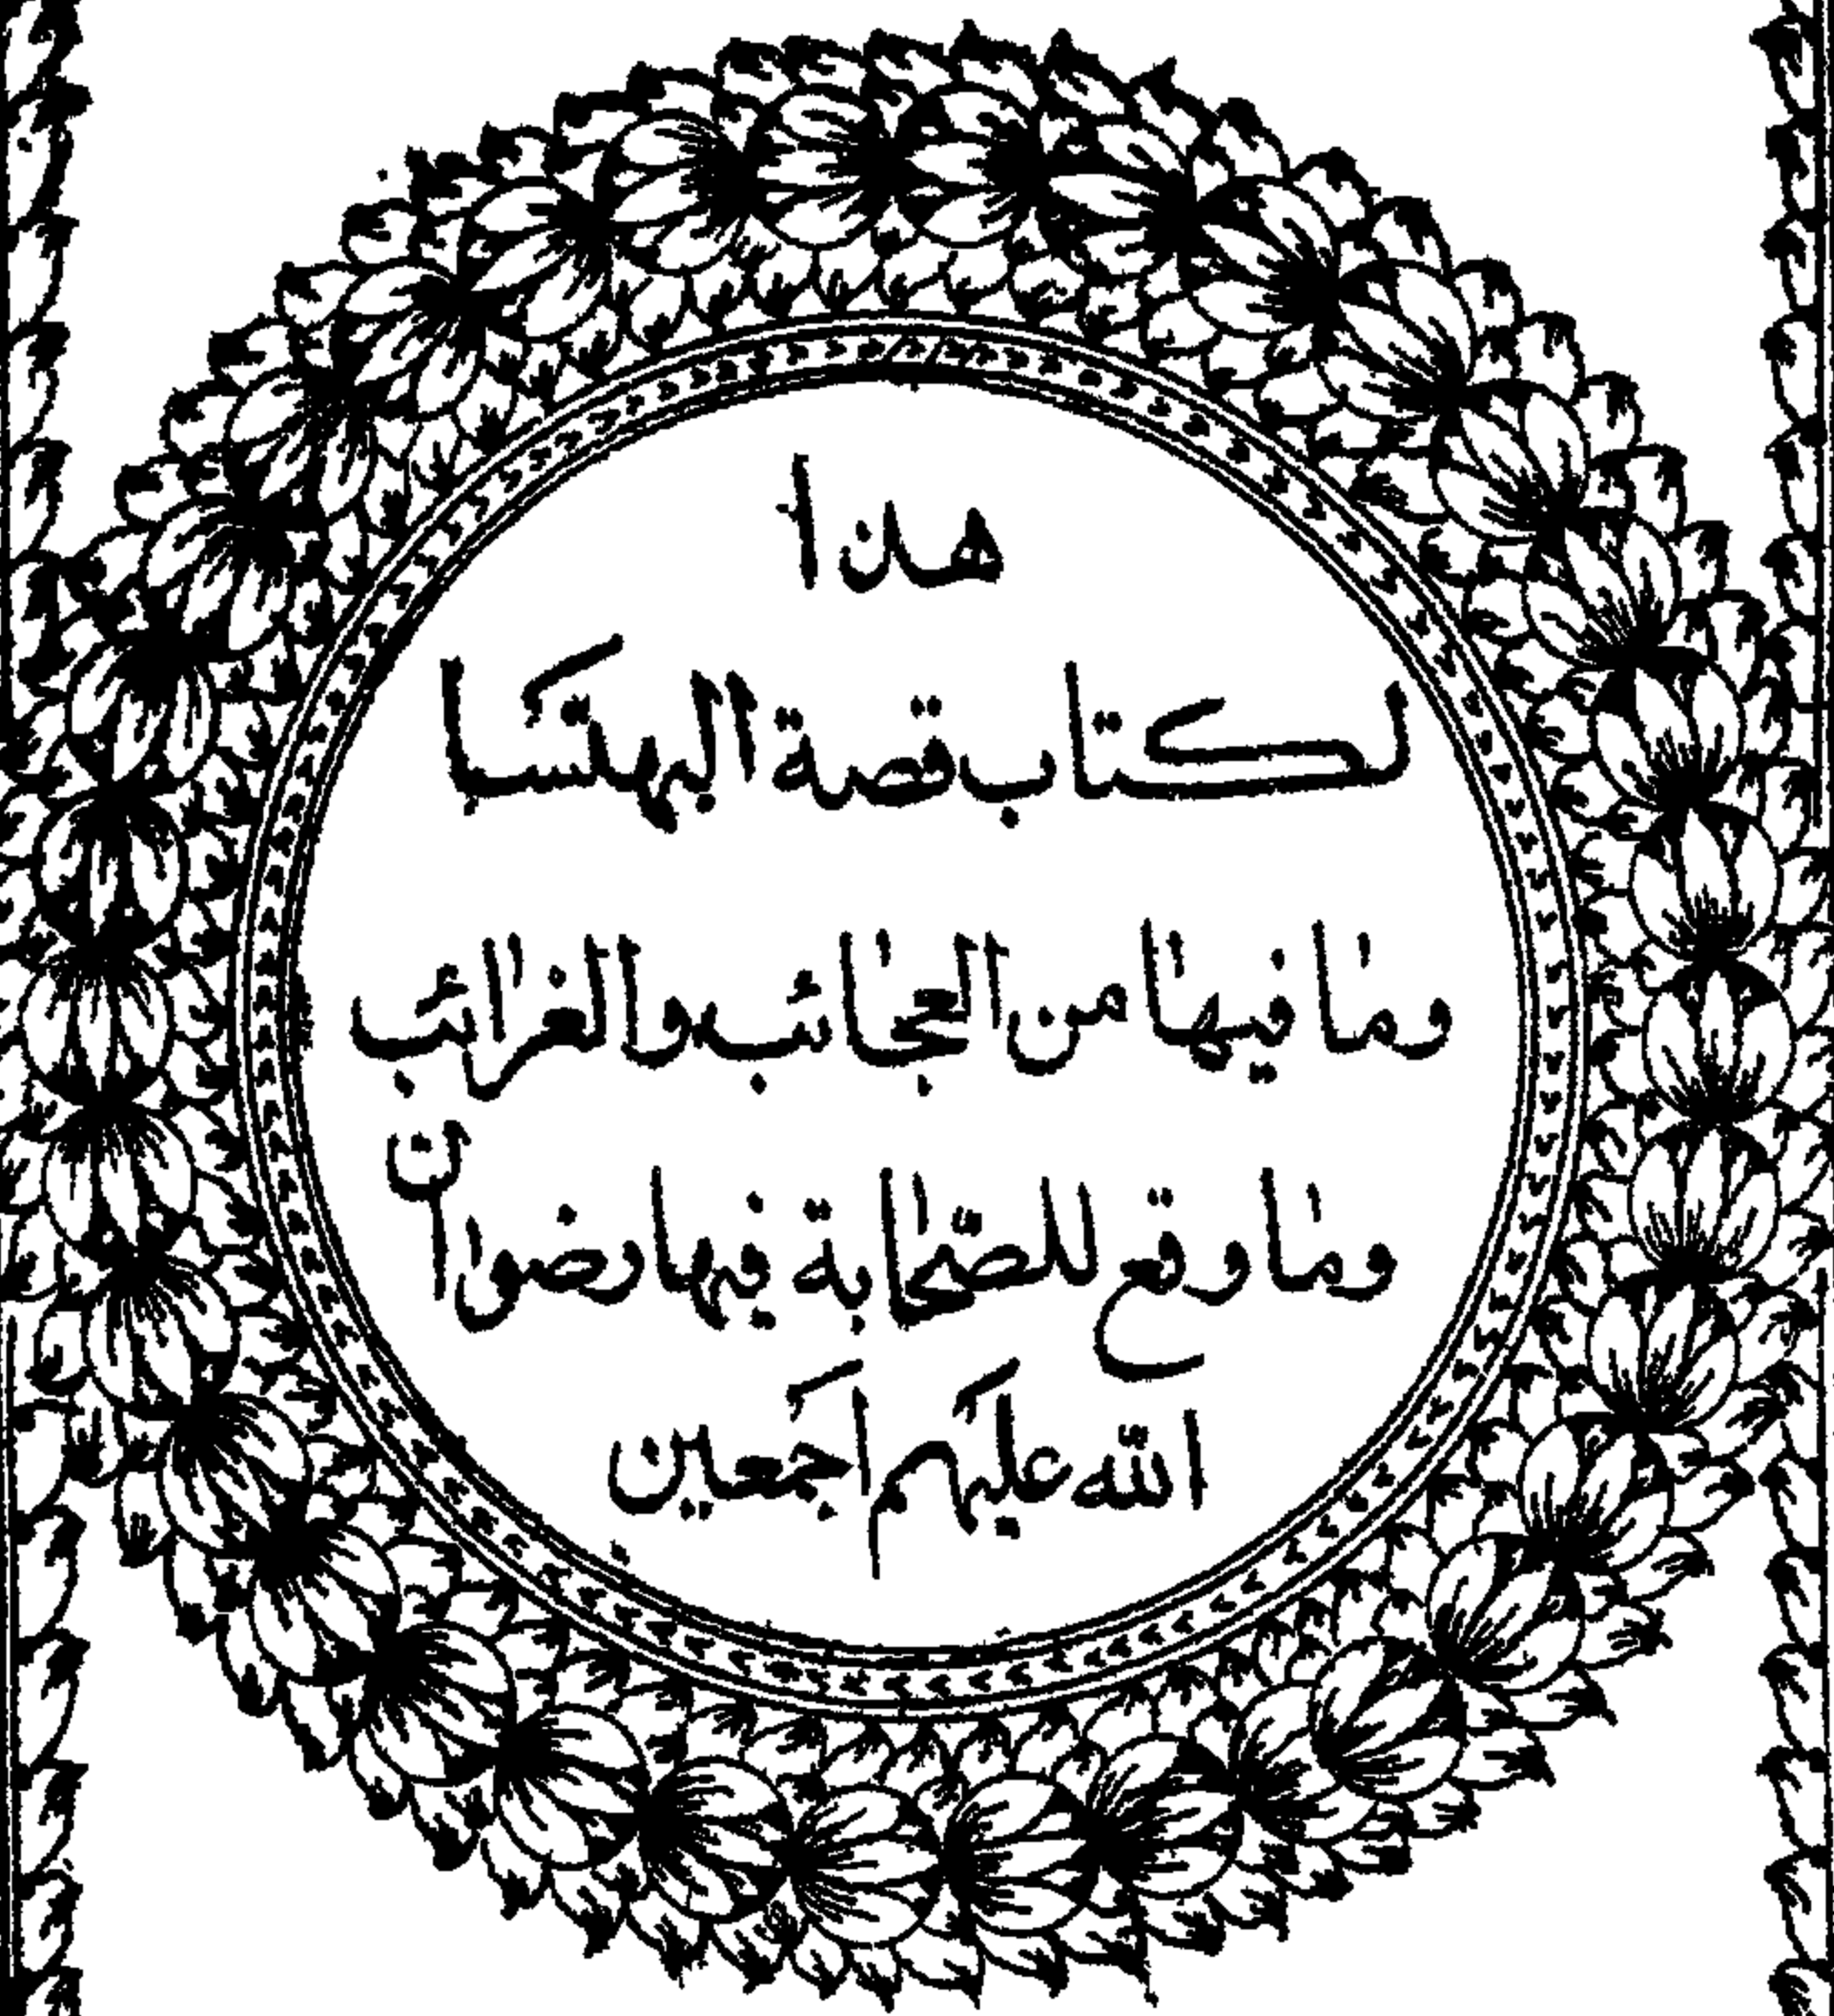 هذا
كتاب قصة البهنسا
وما فيها من العجائب والغرائب
وما وقع للصحابة فيها رضوان
الله عليهم اجمعين